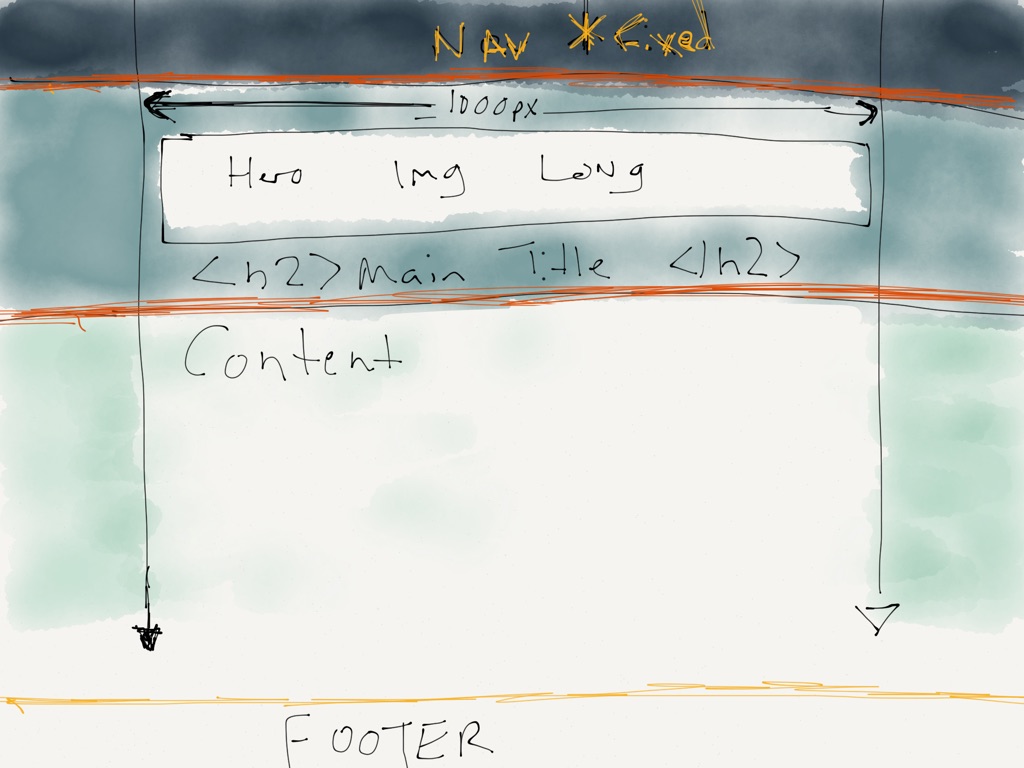 NAV * Fixed
1000px
Hero Img Long
<h2> Main Title </h2>
Content
FOOTER